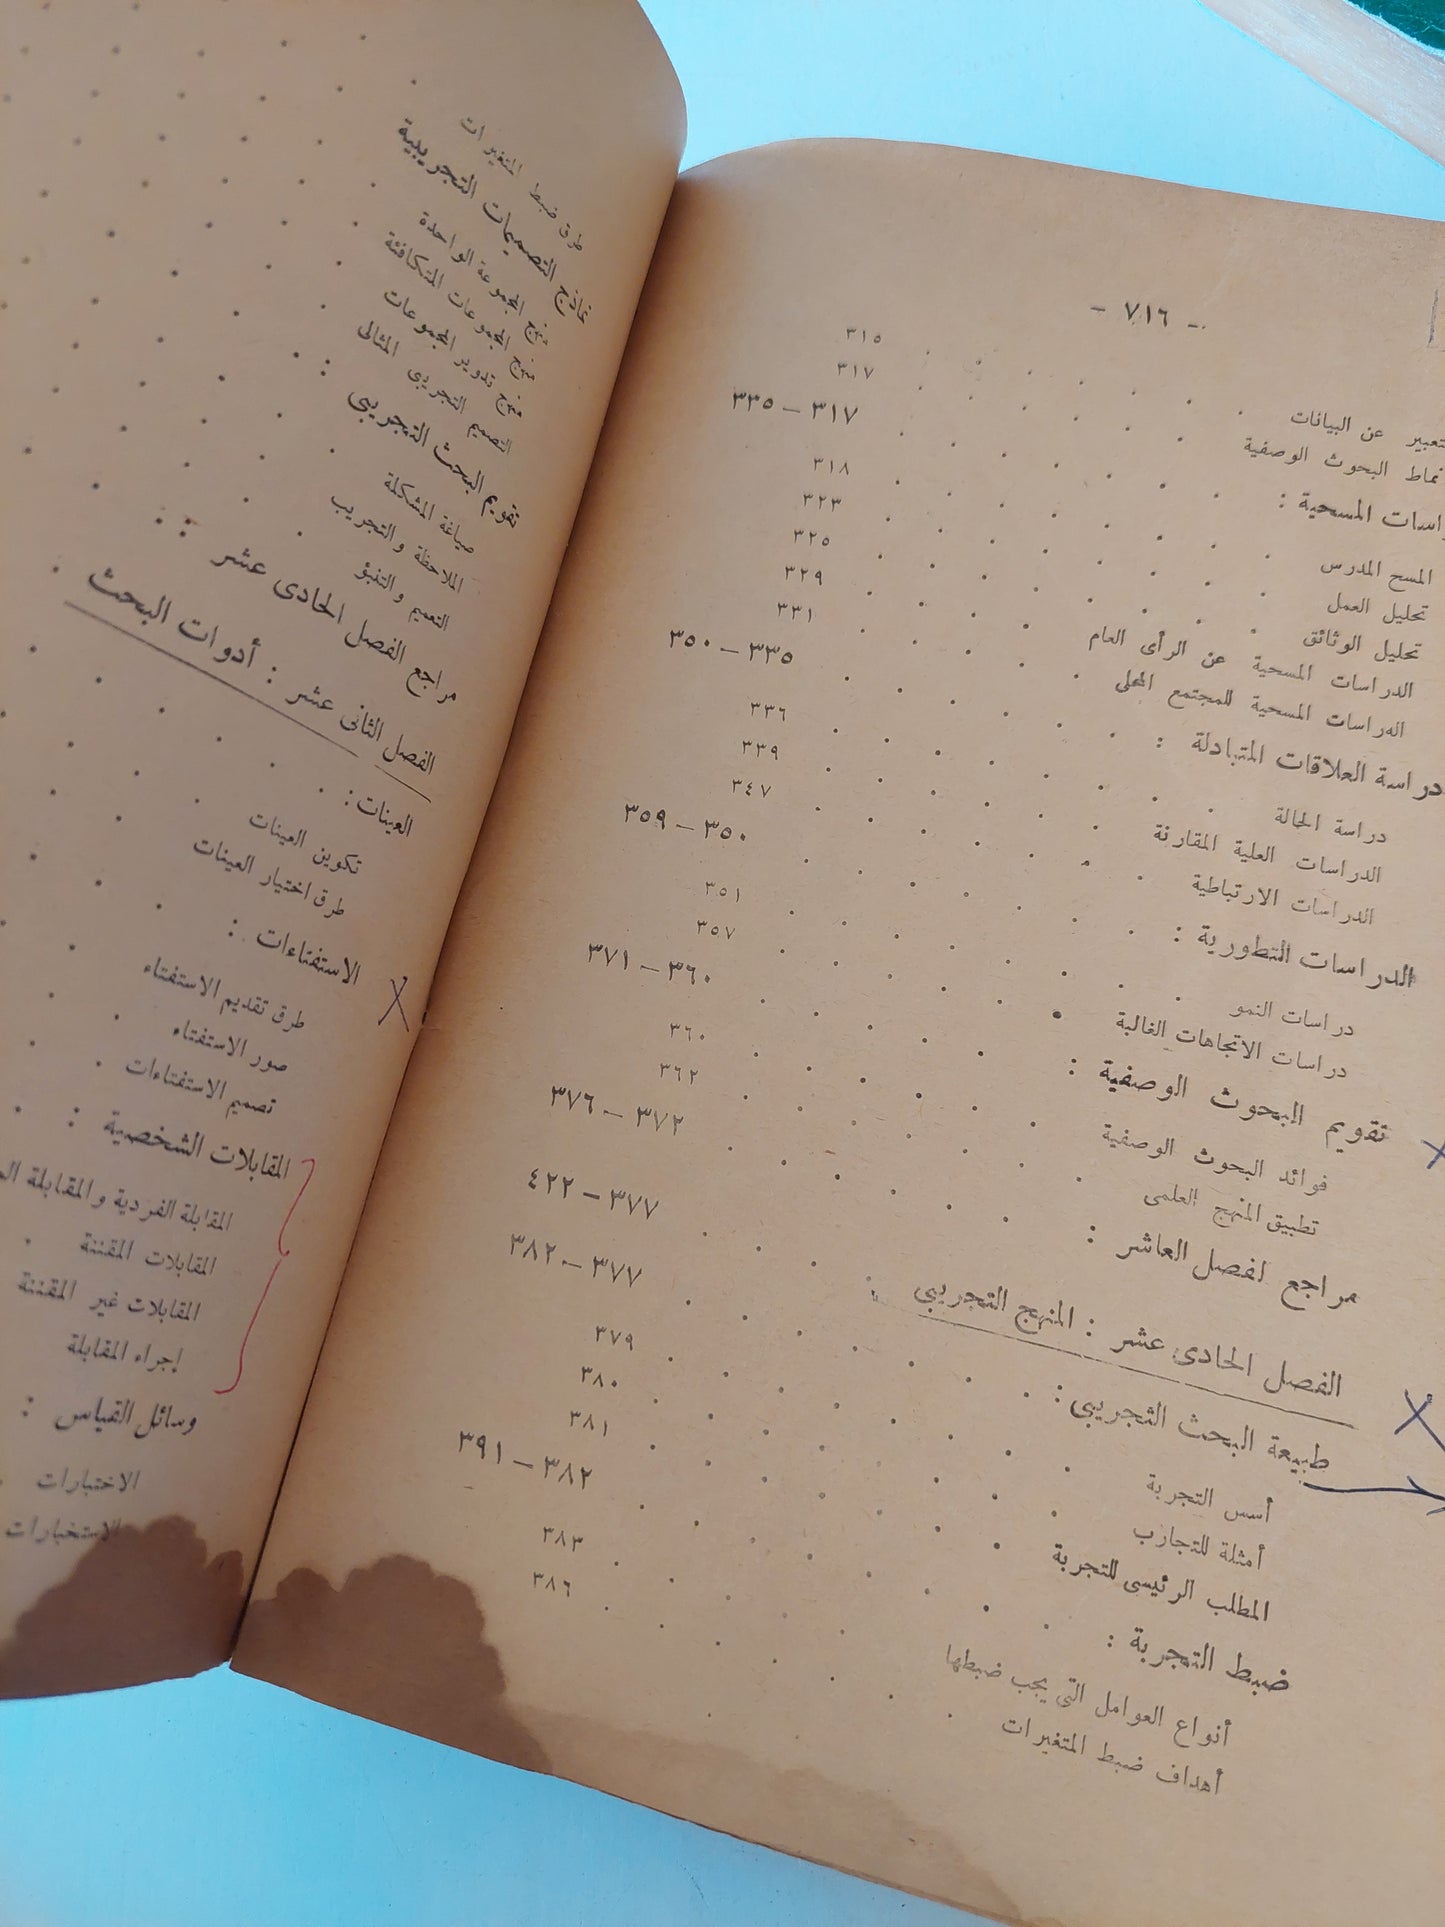 - ٧١٦ -
عن البيانات ٣١٥
البحوث الوصفية ٣١٧
المسحية : ٣١٧ - ٣٣٥
المسح المدرسى ٣١٨
تحليل العمل ٣٢٣
تحليل الوثائق ٣٢٥
الدراسات المسحية عن الرأى العام ٣٢٩
الدراسات المسحية للمجتمع المحلى ٣٣١
دراسة العلاقات المتبادلة : ٣٣٥ - ٣٥٠
دراسة الحالة ٣٣٦
الدراسات العلية المقارنة ٣٣٩
الدراسات الارتباطية ٣٤٧
الدراسات التطورية : ٣٥٠ - ٣٥٩
دراسات النمو ٣٥١
دراسات الاتجاهات الغالبة ٣٥٧
تقويم البحوث الوصفية : ٣٦٠ - ٣٧١
فوائد البحوث الوصفية ٣٦٠
تطبيق المنهج العلمى ٣٦٢
مراجع لفصل العاشر : ٣٧٢ - ٣٧٦
الفصل الحادى عشر : المنهج التجريبى ٣٧٧ - ٤٢٢
طبيعة البحث التجريبى : ٣٧٧ - ٣٨٢
أسس التجربة ٣٧٩
أمثلة للتجارب ٣٨٠
المطلب الرئيسى للتجربة ٣٨١
ضبط التجربة : ٣٨٢ - ٣٩١
أنواع العوامل التى يجب ضبطها ٣٨٣
أهداف ضبط المتغيرات ٣٨٦
طرق ضبط المتغيرات
نماذج التصميمات التجريبية
منهج المجموعة الواحدة
منهج المجموعات المتكافئة
منهج تدوير المجموعات
التصميم التجريبى المثالى
تقويم البحث التجريبى :
صياغة المشكلة
الملاحظة والتجريب
التعميم والتنبؤ
مراجع الفصل الحادى عشر :
الفصل الثانى عشر : أدوات البحث
العينات :
تكوين العينات
طرق اختيار العينات
الاستفتاءات :
طرق تقديم الاستفتاء
صور الاستفتاء
تصميم الاستفتاءات
المقابلات الشخصية :
المقابلة الفردية والمقابلة
المقابلات المقننة
المقابلات غير المقننة
إجراء المقابلة
وسائل القياس :
الاختبارات
الاستخبارات